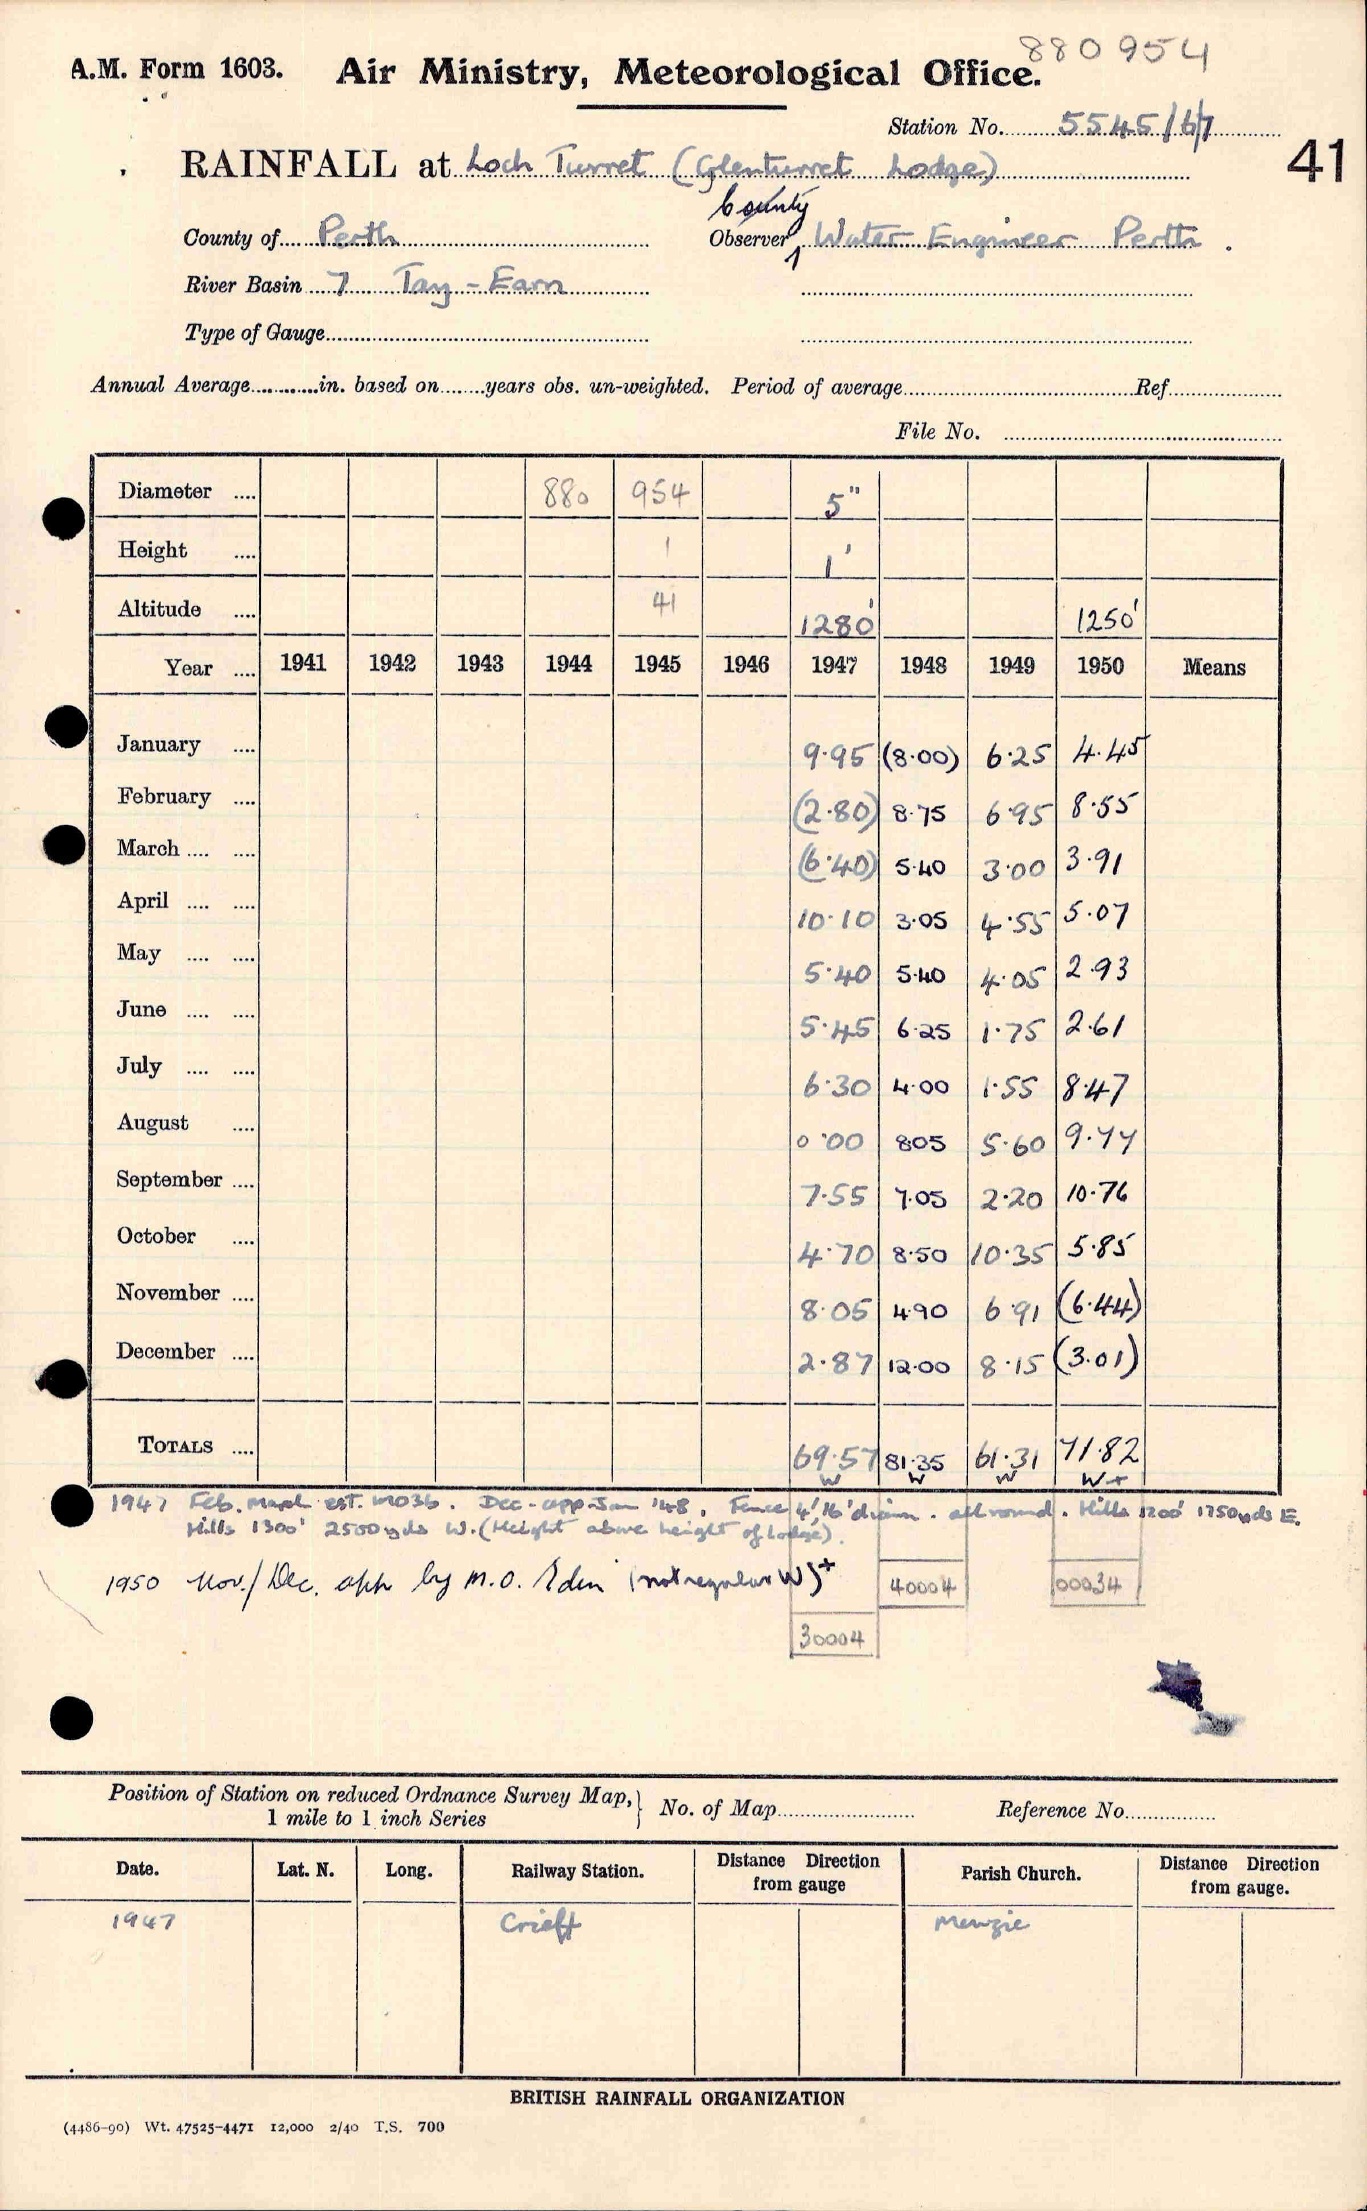 880954
A.M. Form 1603. Air Ministry, Meteorological Office.
Station No. 5545/6/7
41
RAINFALL at Loch Turret (Glenturret Lodge)
County
County of Perth Observer Water Engineer Perth.
River Basin 7 Tay - Earn
Type of Gauge
Annual Average in. based on years obs. un-weighted. Period of average Ref
File No.
Diameter .... 880 954 5"
Height .... 1 1'
Altitude .... 41 1280' 1250'
Year .... 1941 1942 1943 1944 1945 1946 1947 1948 1949 1950 Means
January .... 9.95 (8.00) 6.25 4.45
February .... (2.80) 8.75 6.95 8.55
March .... .... (6.40) 5.40 3.00 3.91
April .... .... 10.10 3.05 4.55 5.07
May .... .... 5.40 5.40 4.05 2.93
June .... .... 5.45 6.25 1.75 2.61
July .... .... 6.30 4.00 1.55 8.47
August .... 0.00 8.05 5.60 9.77
September .... 7.55 7.05 2.20 10.76
October .... 4.70 8.50 10.35 5.85
November .... 8.05 4.90 6.91 (6.44)
December .... 2.87 12.00 8.15 (3.01)
TOTALS .... 69.57 81.35 61.31 71.82
W W W W+
1947 Feb. March est. MO3b. Dec-app Jan '48. Fence 4', 16' diam. all round. Hills 1200' 1750yds E.
Hills 1300' 2500yds W. (Height above height of Lodge).
1950 Nov./Dec. app by M.O. Edin (not regular W)+
40004 00034
30004
Position of Station on reduced Ordnance Survey Map, 1 mile to 1 inch Series } No. of Map Reference No.
Date. Lat. N. Long. Railway Station. Distance Direction from gauge Parish Church. Distance Direction from gauge.
1947 Crieff Monzie
BRITISH RAINFALL ORGANIZATION
(4486-90) Wt. 47525-4471 12,000 2/40 T.S. 700